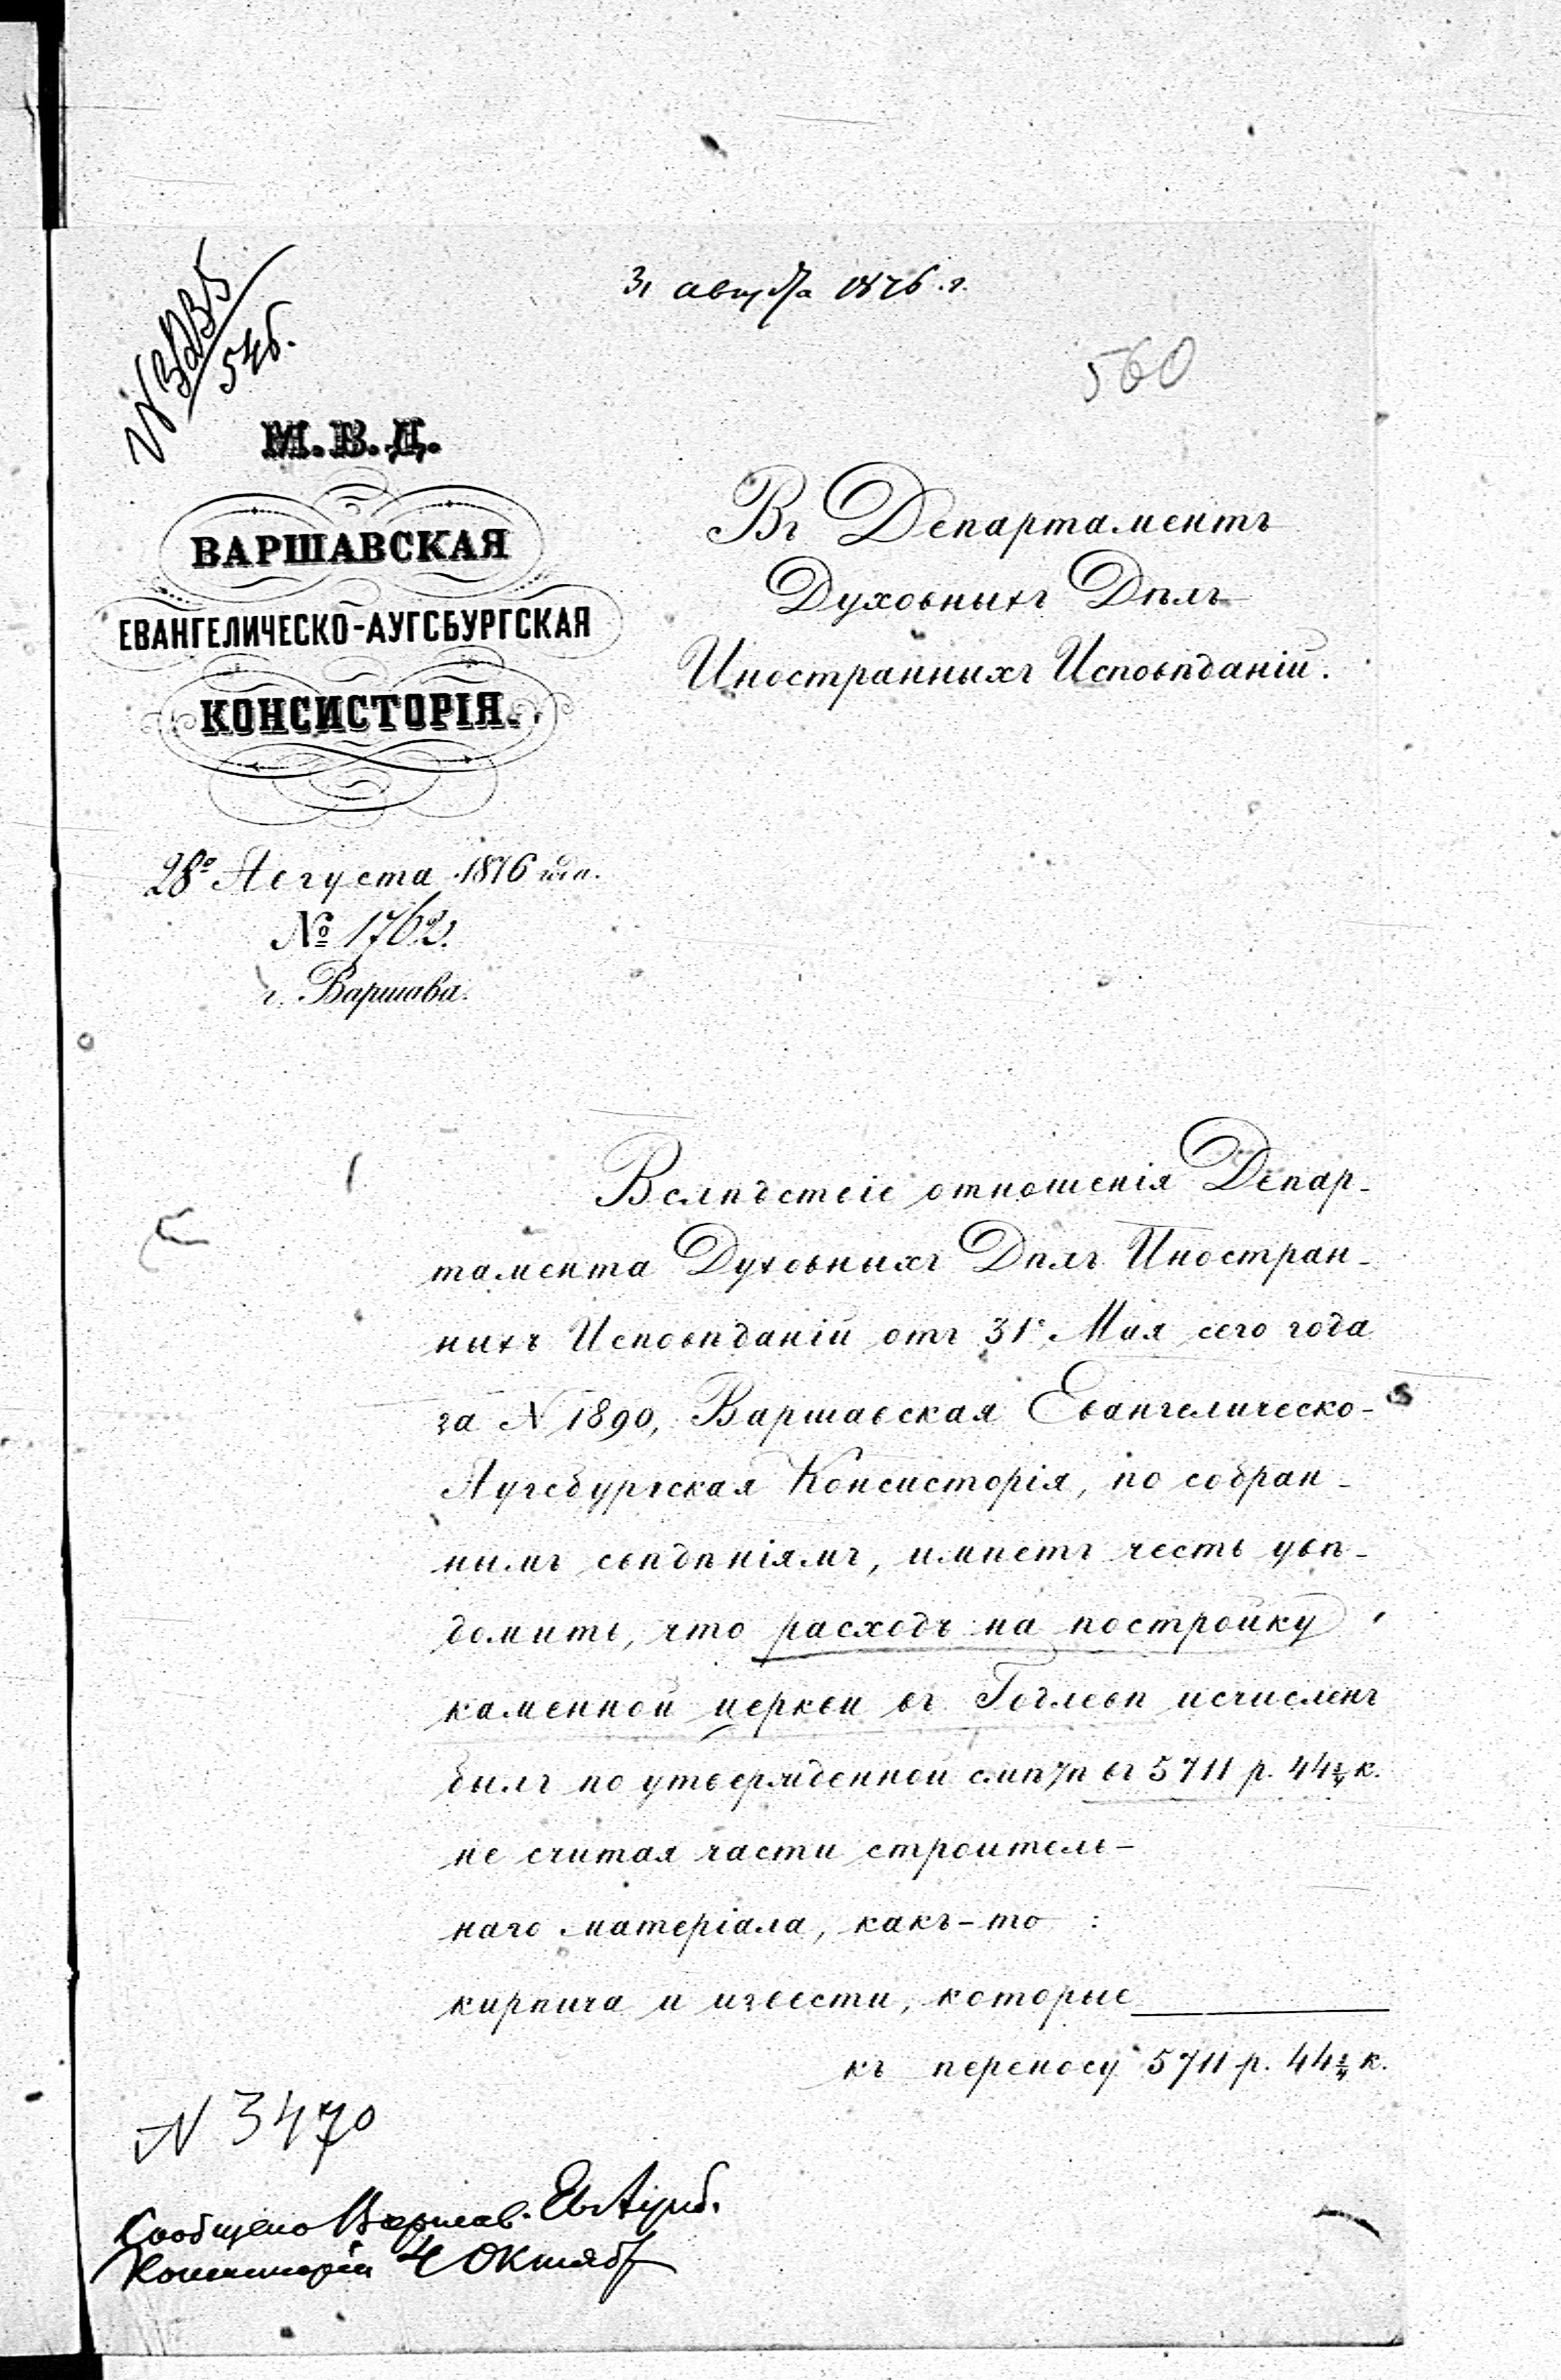 31 августа 1876 г.
560
№ 3235
546.
М.В.Д.
ВАРШАВСКАЯ
ЕВАНГЕЛИЧЕСКО-АУГСБУРГСКАЯ
КОНСИСТОРІЯ.
28º Августа 1876 года.
№ 1762.
г. Варшава.
Въ Департаментъ
Духовныхъ Дѣлъ
Иностранныхъ Исповѣданій.
Вслѣдствіе отношенія Депар-
тамента Духовныхъ Дѣлъ Иностран-
ныхъ Исповѣданій отъ 31º Мая сего года
за № 1890, Варшавская Евангелическо-
Аугсбургская Консисторія, по собран-
нымъ свѣдѣніямъ, имѣетъ честь увѣ-
домить, что расходъ на постройку
каменной церкви въ исчисленъ
былъ по утвержденной смѣтѣ въ 5711 р. 44 к.
не считая части строитель-
наго матеріала, какъ-то:
кирпича и извести, которые
къ переносу 5711 р. 44 к.
№ 3470
Сообщено Варшав. Ев Аугсб.
Консисторіи 4 Октября